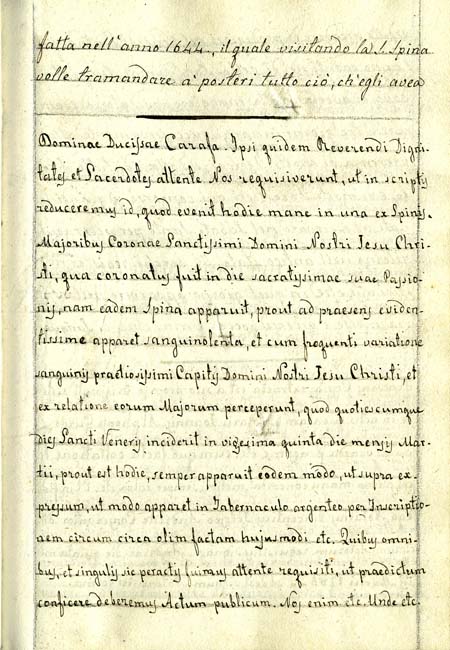 fatta nell'anno 1644., il quale visitando la S. Spina
volle tramandare a' posteri tutto ciò, ch'egli avea
Dominae Ducissae Carafa. Ipsi quidem Reverendi Digni-
tates et Sacerdotes attente Nos requisiverunt, ut in scriptis
reduceremus id, quod evenit hodie mane in una ex Spinis
Majoribus Coronae Sanctissimi Domini Nostri Iesu Chri-
sti, qua coronatus fuit in die sacratissimae suae Passio-
nis, nam eadem Spina apparuit, prout ad praesens eviden-
tissime apparet sanguinolenta, et cum frequenti variatione
sanguinis praetiosissimi Capitis Domini Nostri Iesu Christi, et
ex relatione eorum Majorum perceperunt, quod quotiescumque
dies Sancti Veneris inciderit in vigesima quinta die mensis Mar-
tii, prout est hodie, semper apparuit eodem modo, ut supra ex-
pressum, ut modo apparet in Tabernaculo argenteo per Inscriptio-
nem circum circa olim factam hujusmodi etc. Quibus omni-
bus, et singulis sic peractis fuimus attente requisiti, ut praedictum
conficere deberemus Actum publicum. Nos enim etc. Unde etc.